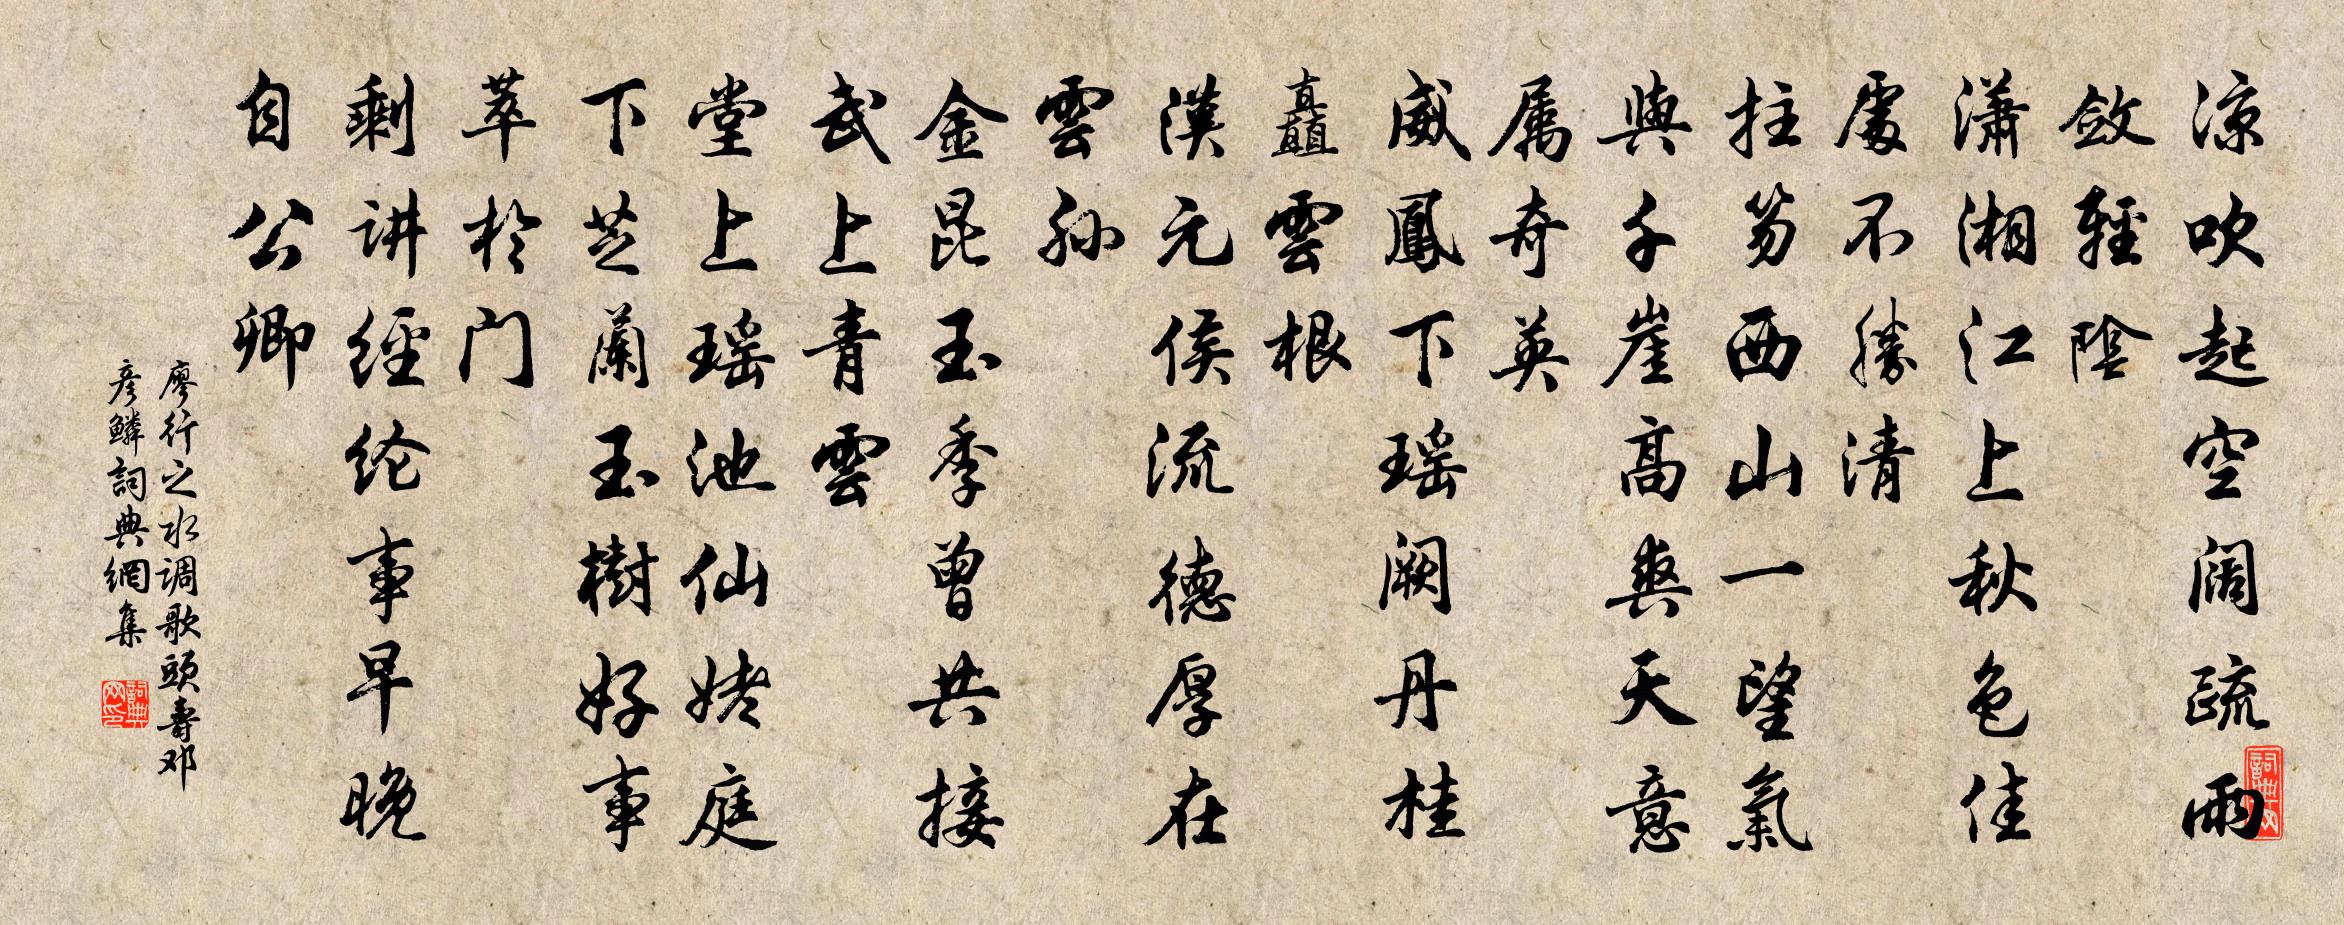 凉吹起空阔疏雨
敛轻阴
潇湘江上秋色佳
處不勝清
拄笏西山一望氣
與千崖高爽天意
属奇英
威鳳下瑶阙丹桂
矗雲根
漢元侯流德厚在
雲孙
金昆玉季曾共接
武上青雲
堂上瑶池仙姥庭
下芝蘭玉樹好事
萃於门
剩讲經纶事早晚
自公卿
廖行之水调歌頭壽邓
彦鱗詞典網集